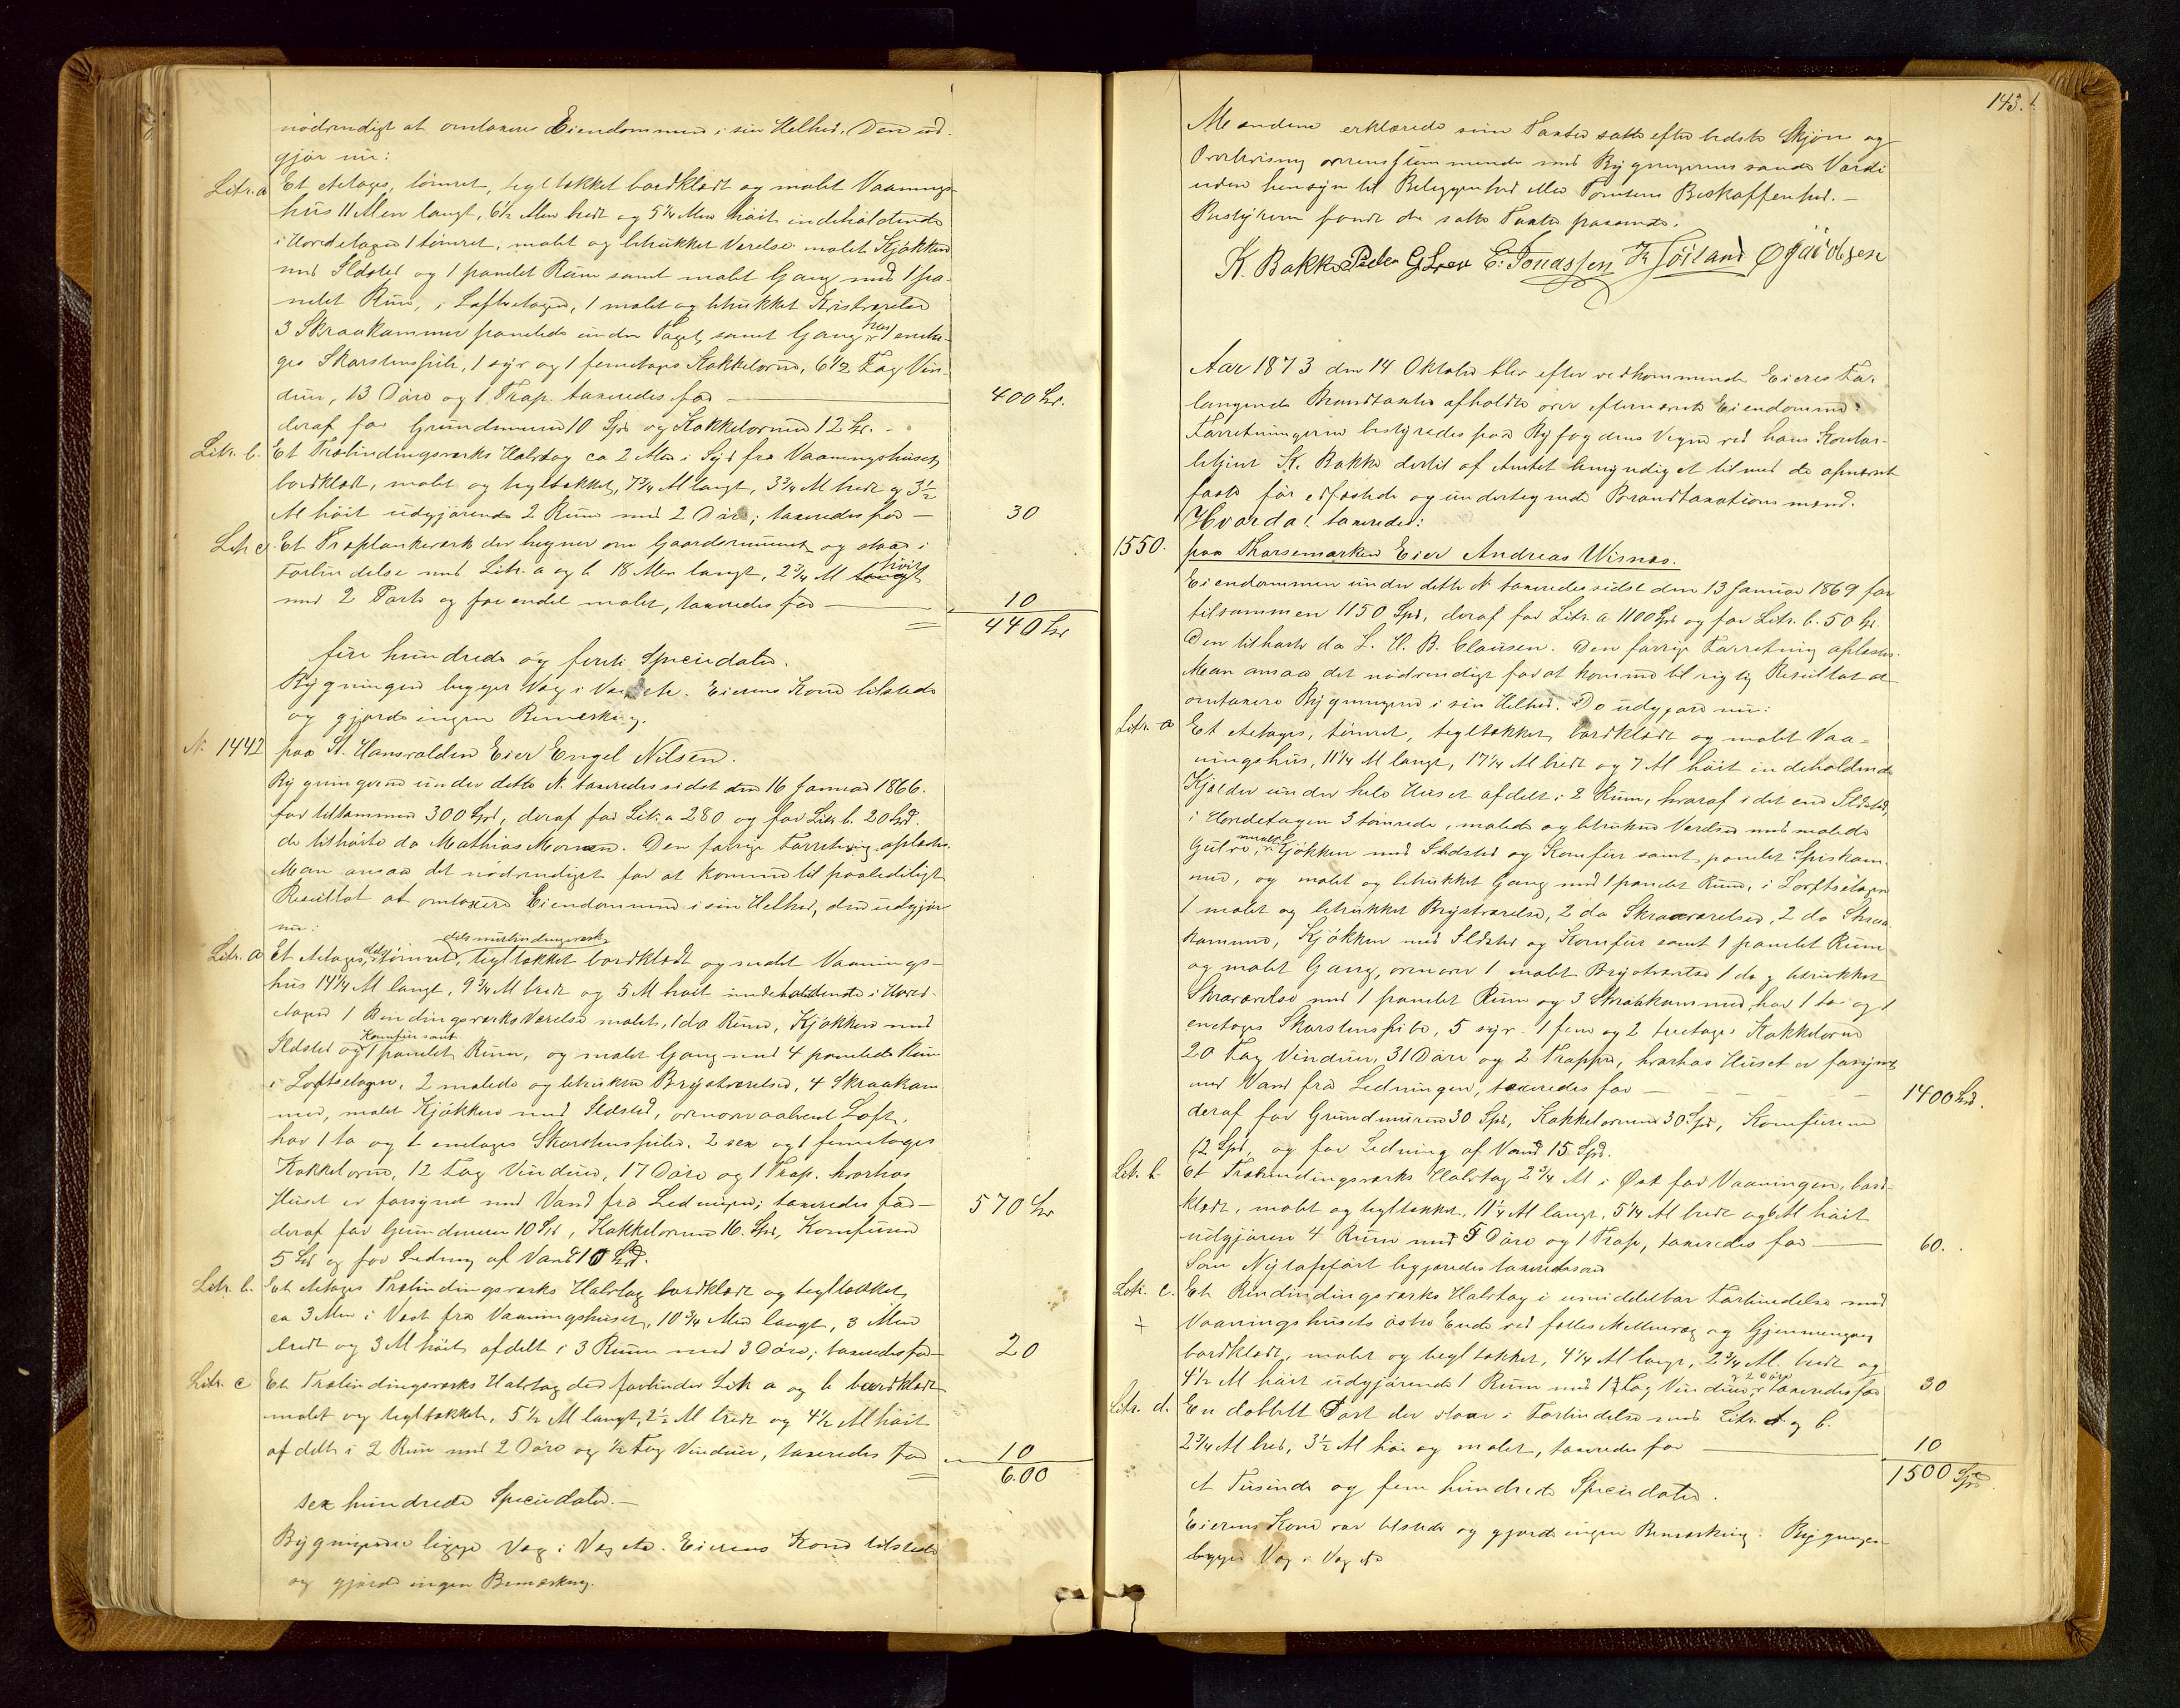 nödvendigt at omtaxere Eiendommen i sin Helhed. Den ud-
gjör nu:
Litr. a Et Etages, tömret, tegltækket bordklædt og malet Vaanings-
hus 11 Alen langt, 6½ Alen bredt og 5¼ Alen höit indeholdende
i Hovedetagen 1 tömret, malet og betrukket Værelse malet Kjökken
med Ildsted og 1 panelet Rum samt malet Gang med 1 pa-
nelet Rum, i Loftsetagen, 1 malet og betrukket Kvistværelse
3 Skraakammer panelede under Taget, samt Gang, har 1 eneta-
ges Skorstenspibe, 1 syv og 1 femetages Kakkelovne, 6½ Fag Vin-
duer, 13 Döre og 1 Trap. taxeredes for — 400 Spd.
deraf for Grundmuren 10 Spd og Kakkelovnene 12 Spd. -
Litr. b. Et Træbindingsværks Halvtag ca 2 Alen i Syd fra Vaaningshuset,
bordklædt, malet og tegltækket, 7¾ Al langt, 3¾ Al bredt og 3½
Al höit udgjörende 2 Rum med 2 Döre; taxeredes for — 30
Litr. c. Et Træplankeværk der hegner om Gaardsrummet og staar i
Forbindelse med Litr. a og b 18 Alen langt, 2¾ Al langt höit
med 2 Porte og for endel malet, taxeredes for — 10
440 Spd
fire hundrede og firti Speciedaler.
Bygningen ligger Væg i Væg etc. Eierens Kone tilstede
og gjorde ingen Bemerkning.
N. 1442 paa St. Hansvolden Eier Engel Nilsen.
Bygningerne under dette N. taxeredes sidst den 16 Januar 1866.
for tilsammen 300 Spd, deraf for Litr. a 280 og for Litr. b. 20 Spd.
de tilhörte da Mathias Monsen. Den forrige Forretning oplæstes.
Man ansaa det nödvendigt for at komme til paalideligt
Resultat at omtaxere Eiendommen i sin Helhed, den udgjör
nu:
dels murbindingsværk
Litr. a Et Etages, dels tömret, tegltækket bordklædt og malet Vaanings-
hus 14¼ Al langt, 9¾ Al bredt og 5 Al höit indeholdende i Hoved-
etagen 1 Bindingsværks Værelse malet, 1 do Rum, Kjökken med
Ildsted og Komfur samt 1 panelet Rum, og malet Gang med 4 panelede Rum
i Loftsetagen, 2 malede og betrukne Brystværelser, 4 Skraakam-
mer, malet Kjökken med Ildsted, ovenover aabent Loft,
har 1 to og 1 enetages Skorstenspibe. 2 sex og 1 femetages
Kakkelovne, 12 Fag Vinduer, 17 Döre og 1 Trap. hvorhos
Huset er forsynet med Vand fra Ledningen; taxeredes for — 570 Spd
deraf for Grundmuren 10 Spd, Kakkelovnene 16 Spd, Komfuren
5 Spd og for Ledning af Vand 10 Spd.
Litr. b. Et Etages Træbindingsværks Halvtag bordklædt og tegltækket,
ca 3 Alen i Vest fra Vaaningshuset, 10¾ Alen langt, 3 Alen
bredt og 3 Al höit, afdelt i 3 Rum med 3 Döre; taxeredes for — 20
Litr. c Et Træbindingsværks Halvtag der forbinder Litr. a og b bordklædt
malet og tegltækket, 5½ Al langt, 2½ Al bredt og 4½ Al höit
afdelt i 2 Rum med 2 Döre og ½ Fag Vinduer, taxeredes for 10
600
sex hundrede Speciedaler. -
Bygningerne ligge Væg i Væg etc. Eierens Kone tilstede
og gjorde ingen Bemerkning.
143.
Mændene erklærede sine Taxter satte efter bedste Skjön og
Overbevisning overensstemmende med Bygningernes sande Værdi
uden hensyn til Beliggenhed eller Tomtens Beskaffenhed. -
Bestyreren fandt de satte Taxter passende.
K. Bakke Peder G Lrsen E. Jonassen H Töiland O Jacobsen
Aar 1873 den 14 Oktober blev efter vedkommende Eieres For-
langende Brandtaxter afholdte over efternævnte Eiendomme.
Forretningerne bestyredes paa Byfogdens Vegne ved hans Kontor-
betjent K. Bakke dertil af Amtet bemyndiget tilmed de opnævnte
faste för edfæstede og undertegnede Brandtaxationsmænd.
Hvorda: taxeredes:
1550. paa Skarsemarken Eier Andreas Wisnæs.
Eiendommen under dette N. taxeredes sidst den 13 Januar 1869 for
tilsammen 1150 Spd, deraf for Litr. a 1100 Spd og for Litr. b. 50 Spd.
Den tilhörte da L. H. B. Clausen. Den forrige Forretning oplæstes.
Man ansaa det nödvendigt for at komme til rigtig Resultat at
omtaxere Bygningerne i sin Helhed. De udgjöre nu:
Litr. a Et Etages, tömret, tegltækket, bordklædt og malet Vaa-
ningshus, 11¼ Al langt, 17¼ Al bredt og 7 Al höit indeholdende
Kjælder under hele Huset afdelt i 2 Rum, hvoraf i det ene Ildsted,
i Hovedetagen 3 tömrede, malede og betrukne Værelser med malede
Gulve, malet Kjökken med Ildsted og Komfur samt panelet Spiskam-
mer, og malet og betrukket Gang med 1 panelet Rum, i Loftsetagen
1 malet og betrukket Brystværelse, 2 do Skraaværelser, 2 do Skraa-
kammer, Kjökken med Ildsted og Komfur samt 1 panelet Rum
og malet Gang, ovenover 1 malet Brystværelse 1 do og betrukket
Skraværelse med 1 panelet Rum og 3 Skraakammer, har 1 to og 1
enetages Skorstenspibe, 5 syv- 1 fem og 2 treetages Kakkelovne
20 Fag Vinduer, 31 Döre og 2 Trapper, hvorhos Huset er forsynet
med Vand fra Ledningen, taxeredes for — 1400 Spd.
deraf for Grundmuren 30 Spd, Kakkelovnene 30 Spd, Komfurene
12 Spd, og for Ledning af Vand 15 Spd.
Litr. b. Et Træbindingsværks Halvtag 2¾ Al i Öst for Vaaningen, bord-
klædt, malet og tegltækket, 11¼ Al langt, 5¼ Al bredt og 6 Al höit
udgjörer 4 Rum med 5 Döre og 1 Trap, taxeredes for — 60.
Som Nyt opfört
Litr. c. Et Bindingsværks Halvtag i umiddelbar Forbindelse med
+ Vaaningshusets östre Ende ved fælles Mellemvæg og Gjennemgang
bordklædt, malet og tegltækket, 4¼ Al langt, 2¾ Al. bredt og
4½ Al höit udgjörende 1 Rum med 1½ Fag Vinduer, og 2 Döre taxeredes for 30
Litr. d. En dobbelt Port der staar i Forbindelse med Litr. a og b.
2¾ Al bred, 3½ Al höi og malet, taxeredes for — 10
1500 Spd.
et Tusinde og fem hundrede Speciedaler.
Eierens Kone var tilstede og gjorde ingen Bemærkning. Bygningen
ligger Væg i Væg etc